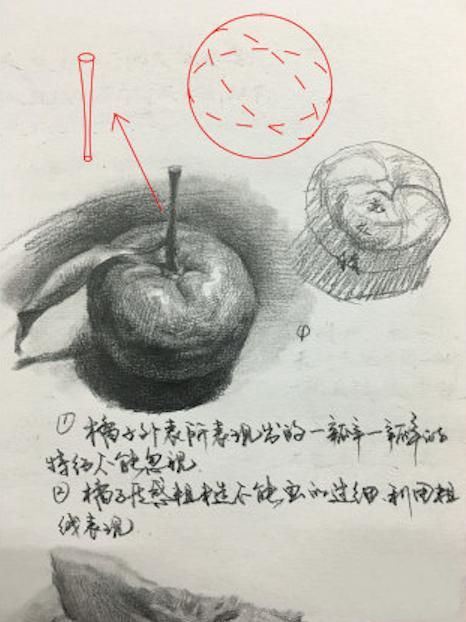 ① 橘子外表所表现出的一瓣一瓣的
特征不能忽视
② 橘子质感粗糙不能画的过细,利用粗
线表现